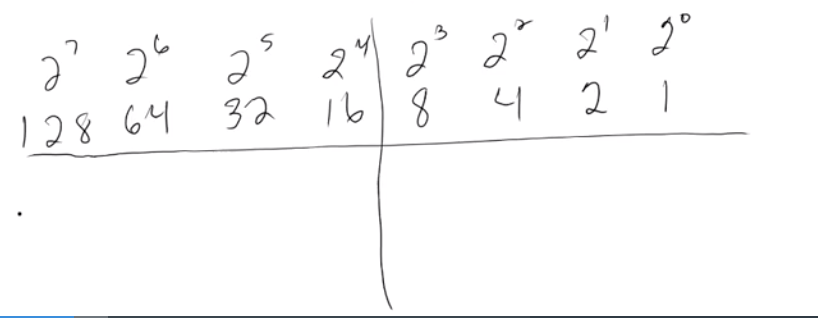 2⁷ 2⁶ 2⁵ 2⁴ 2³ 2² 2¹ 2⁰
128 64 32 16 8 4 2 1